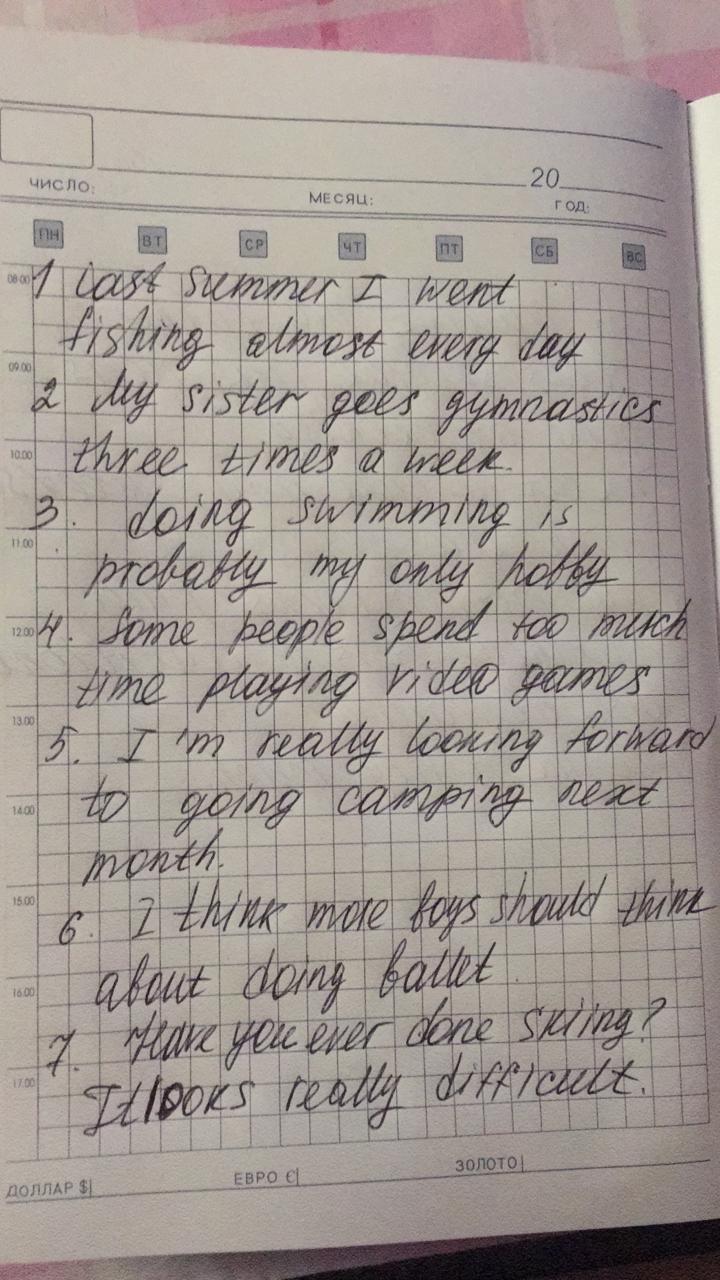 20
ЧИСЛО: МЕСЯЦ: ГОД:
ПН ВТ СР ЧТ ПТ СБ ВС
08:00 1 Last summer I went
fishing almost every day
09:00
2 My sister goes gymnastics
10:00 three times a week.
3. doing swimming is
11:00
probably my only hobby
12:00 4. Some people spend too much
time playing video games
13:00
5. I'm really looking forward
14:00 to going camping next
month.
15:00
6. I think more boys should think
16:00 about doing ballet
7. Have you ever done skiing?
17:00 It looks really difficult.
ДОЛЛАР $| ЕВРО €| ЗОЛОТО|